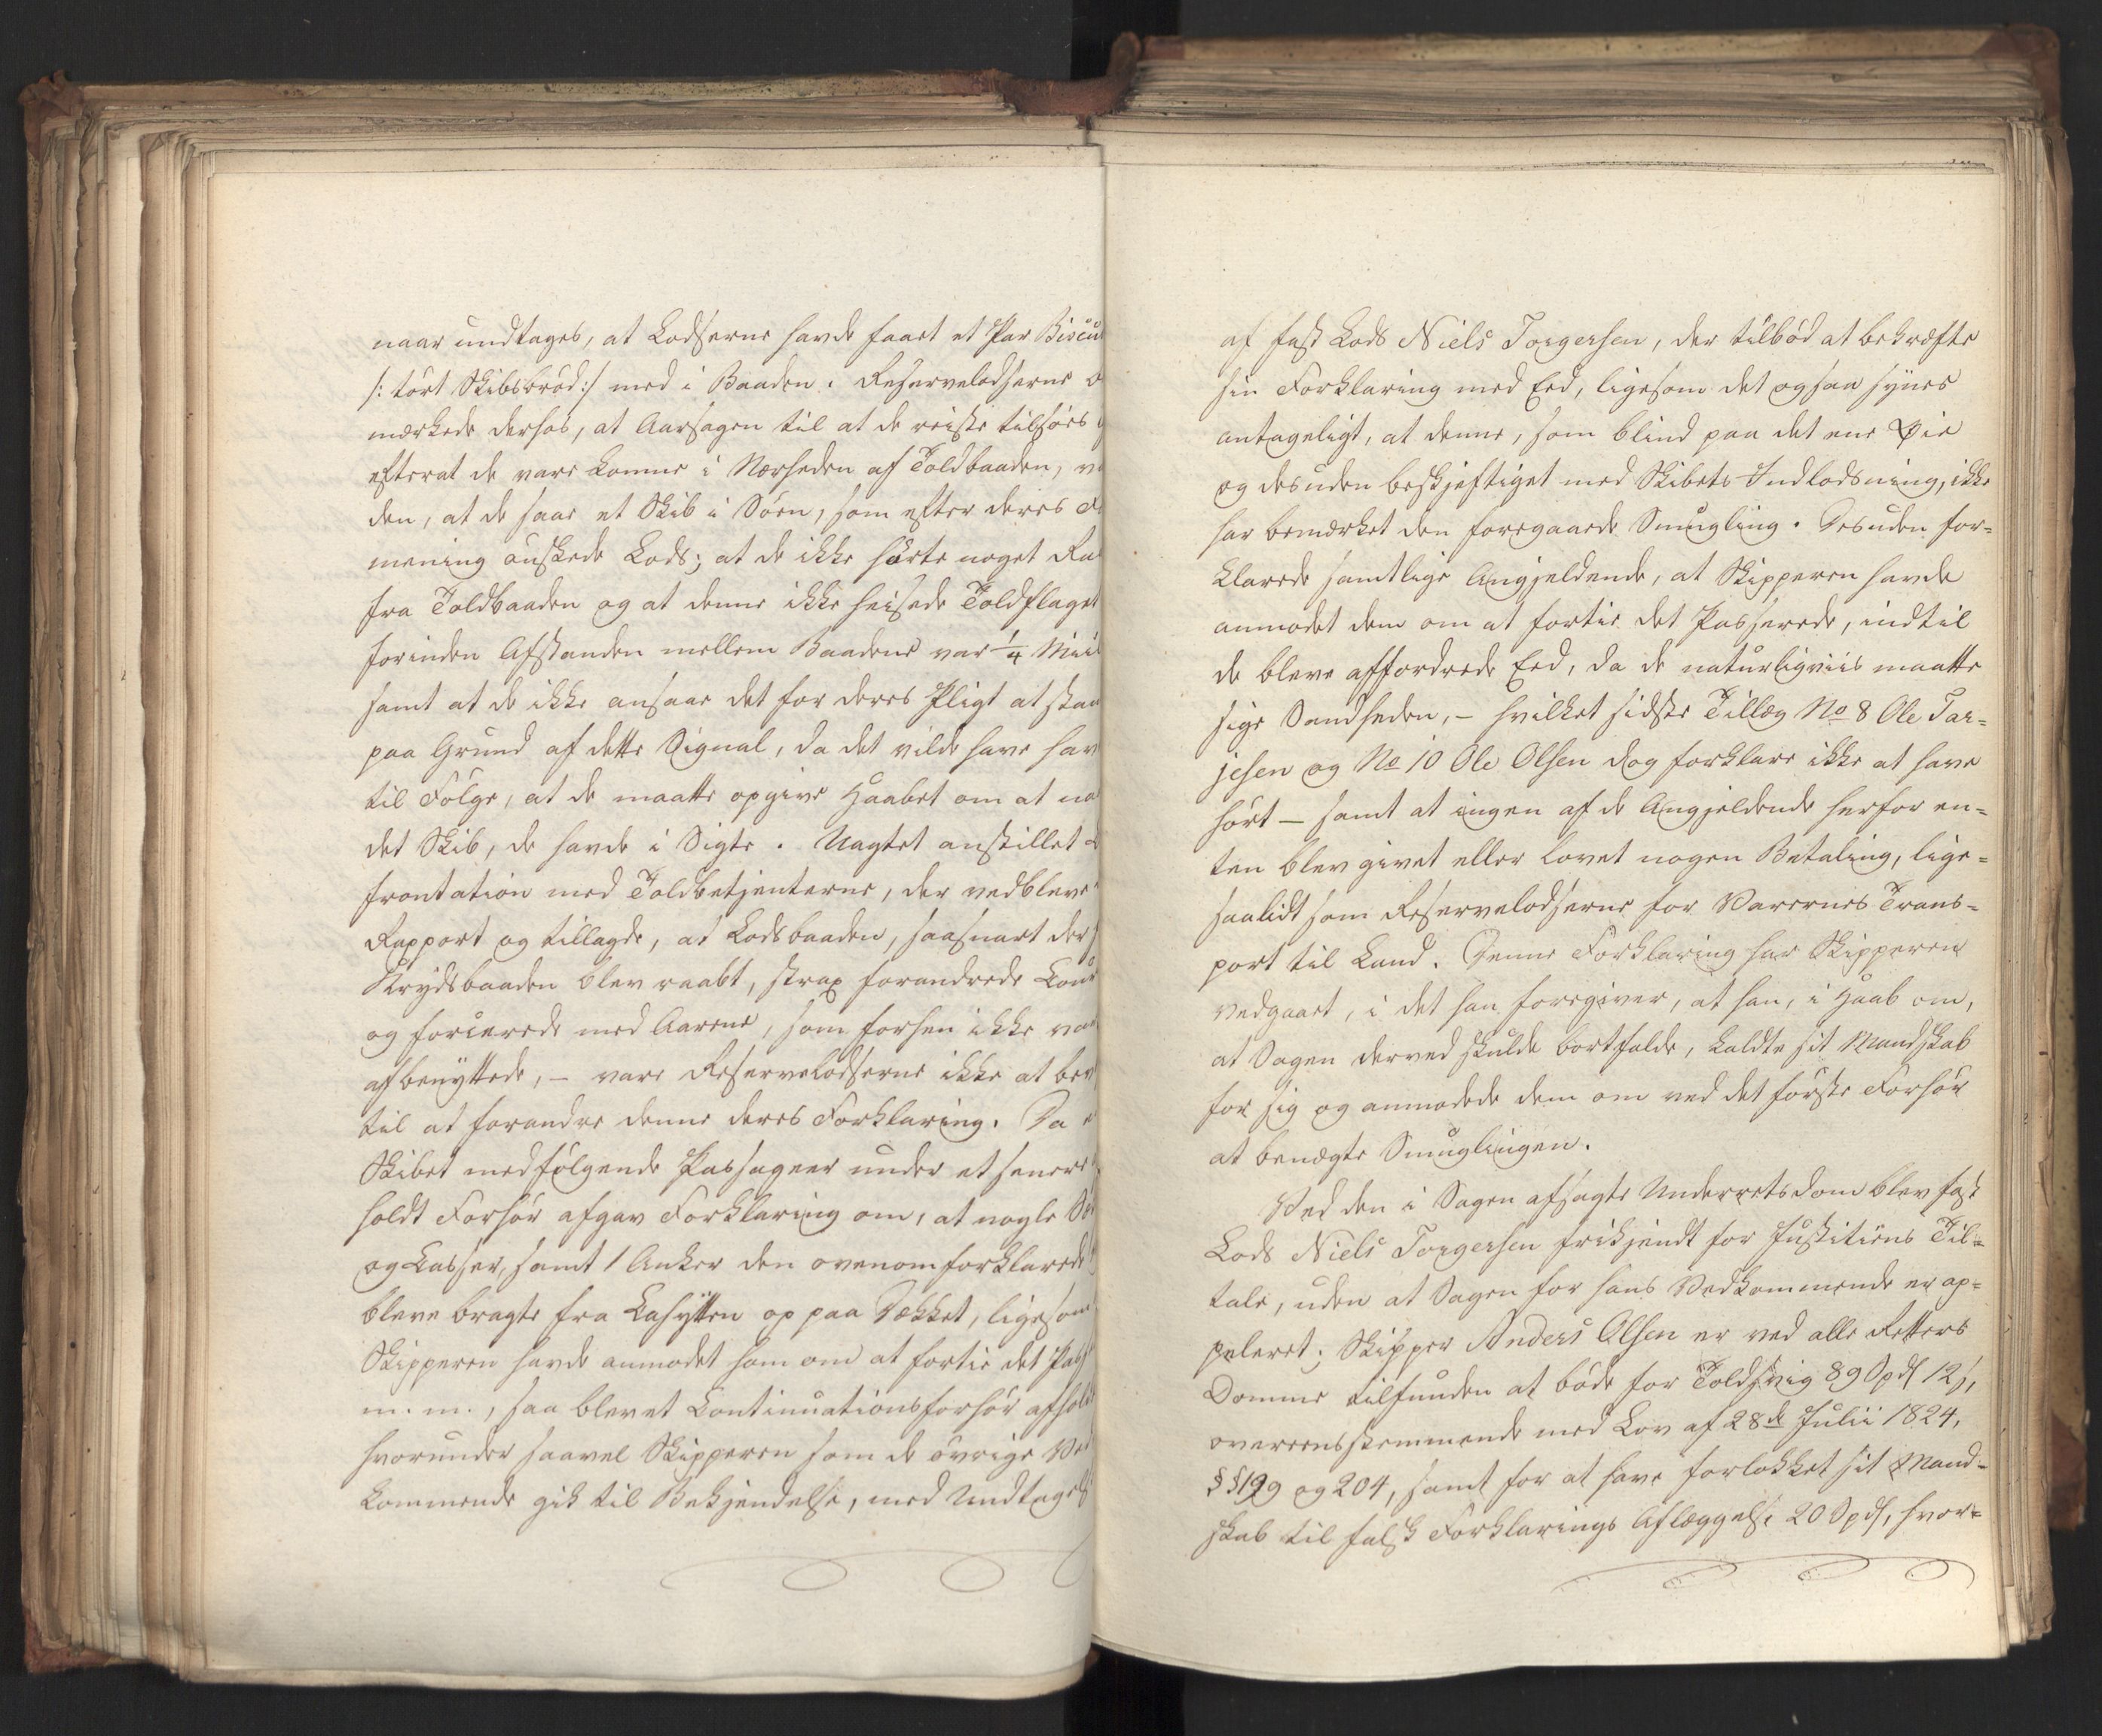 naar undtages, at Lodserne havde faaet et Par Biscui
/: tört Skibsbröd :/ med i Baaden. Reservelodserne
mærkede derhos, at Aarsagen til at de reiste tilsöes
efterat de vare komne i Nærheden af Toldbaaden, v
den, at de saae et Skib i Söen, som efter deres
mening önskede Lods; at de ikke hörte noget Ra
fra Toldbaaden og at denne ikke heisede Toldflaget
forinden Afstanden mellem Baadene var 1/4 Miil
samt at de ikke ansaae det for deres Pligt at stan
paa Grund af dette Signal, da det vilde have hav
til Fölge, at de maatte opgive Haabet om at na
det Skib, de havde i Sigte. Uagtet anstillet
frontation med Toldbetjenterne, der vedbleve
Rapport og tillagde, at Lodsbaaden, saasnart der
Krydsbaaden blev raabt, strax forandrede Cour
og forcerede med Aarene, som forhen ikke var
afbenyttede, - vare Reservelodserne ikke at bev
til at forandre denne deres Forklaring. Da
Skibet medfölgende Passageer under et senere
holdt Forhör afgav Forklaring om, at nogle
og Casser, samt 1 Anker den ovenomforklarede
bleve bragte fra Cahytten op paa Dækket, ligesom
Skipperen havde anmodet ham om at fortie det Pass
m. m., saa blev et Continuationsforhör afhold
hvorunder saavel Skipperen som de övrige Ved
kommende gik til Bekjendelse, med Undtagelse
af fast Lods Niels Torgersen, der tilböd at bekræfte
sin Forklaring med Eed, ligesom det ogsaa synes
antageligt, at denne, som blind paa det ene Öie
og desuden beskjeftiget med Skibets Indlodsning, ikke
har bemærket den foregaaede Smugling. Desuden for=
klarede samtlige Angjeldende, at Skipperen havde
anmodet dem om at fortie det Passerede, indtil
de bleve affordrede Eed, da de naturligviis maatte
sige Sandheden, - hvilket sidste Tillæg No 8 Ole Tar=
jesen og No 10 Ole Olsen dog forklare ikke at have
hört - samt at ingen af de Angjeldende herfor en=
ten blev givet eller lovet nogen Betaling, lige=
saalidt som Reservelodserne for Varernes Trans=
port til Land. Denne Forklaring har Skipperen
vedgaaet, i det han foregiver, at han, i Haab om,
at Sagen derved skulde bortfalde, kaldte sit Mandskab
for sig og anmodede dem om ved det förste Forhör
at benægte Smuglingen.
Ved den i Sagen afsagte Underretsdom blev fast
Lods Niels Torgersen frikjendt for Justitiens Til=
tale, uden at Sagen for hans Vedkommende er ap=
pelleret; Skipper Anders Olsen er ved alle Retters
Domme tilfunden at böde for Toldsvig 89 Spd 12 s,
overeensstemmende med Lov af 28de Julii 1824,
§ § 199 og 204, samt for at have forlokket sit Mand=
skab til falsk Forklarings Aflæggelse 20 Spd, hvor=